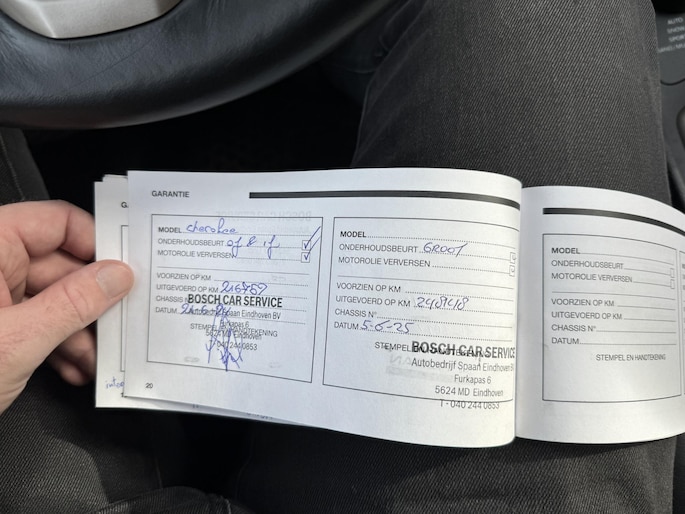 GARANTIE
MODEL cherokee
ONDERHOUDSBEURT
MOTOROLIE VERVERSEN
VOORZIEN OP KM
UITGEVOERD OP KM
CHASSIS
DATUM
BOSCH CAR SERVICE
Autobedrijf Spaan Eindhoven BV
Furkapas 6
5624 MD Eindhoven
T - 040 244 0853
20
MODEL
ONDERHOUDSBEURT GROOT
MOTOROLIE VERVERSEN
VOORZIEN OP KM
UITGEVOERD OP KM
CHASSIS N°
DATUM 5-6-25
STEMPEL EN HANDTEKENING
BOSCH CAR SERVICE
Autobedrijf Spaan Eindhoven
Furkapas 6
5624 MD Eindhoven
T - 040 244 0853
MODEL
ONDERHOUDSBEURT
MOTOROLIE VERVERSEN
VOORZIEN OP KM
UITGEVOERD OP KM
CHASSIS N°
DATUM
STEMPEL EN HANDTEKENING
AUTO
SNOW
SPORT